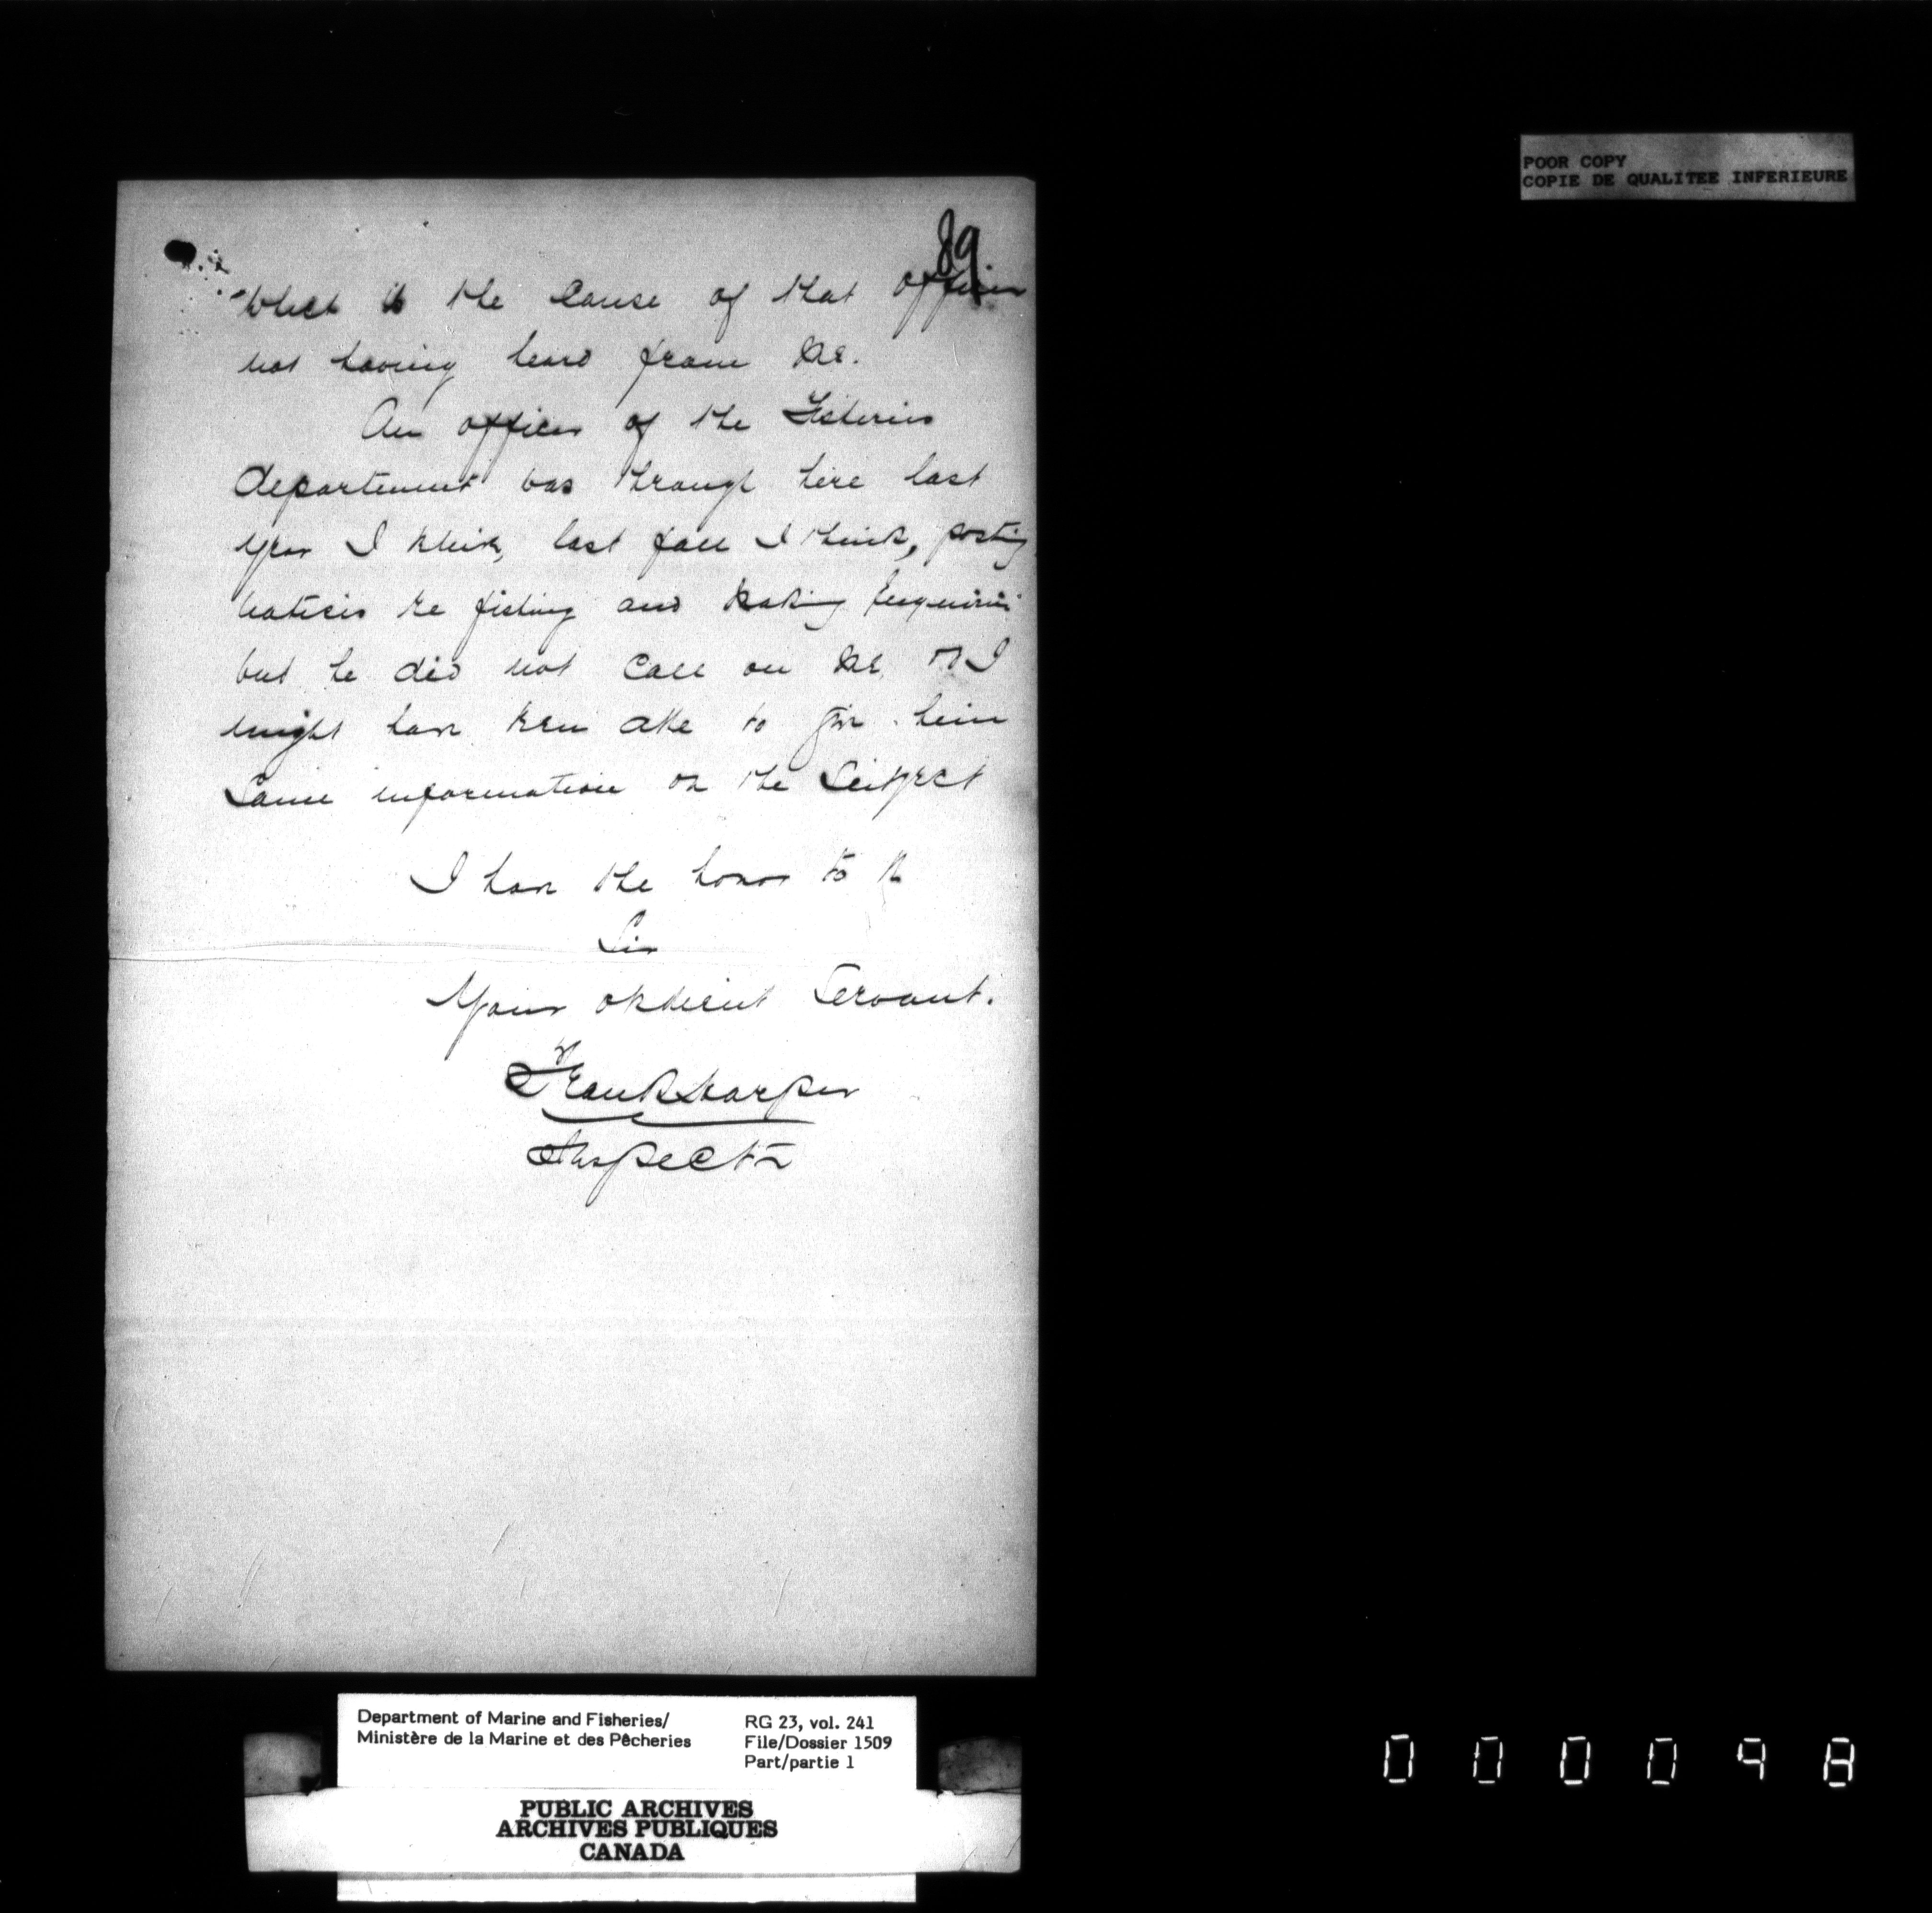 POOR COPY
COPIE DE QUALITEE INFERIEURE
89
what is the cause of that officer
not having heard from me.
An officer of the Fisheries
department was through here last
year I think, last fall I think, posting
notices re fishing and making enquiries
but he did not call on me or I
might have been able to give him
some information on the subject
I have the honor to be
Sir
Your obedient servant.
Frank Harper
Inspector
Department of Marine and Fisheries/
Ministère de la Marine et des Pêcheries
RG 23, vol. 241
File/Dossier 1509
Part/partie 1
PUBLIC ARCHIVES
ARCHIVES PUBLIQUES
CANADA
000098